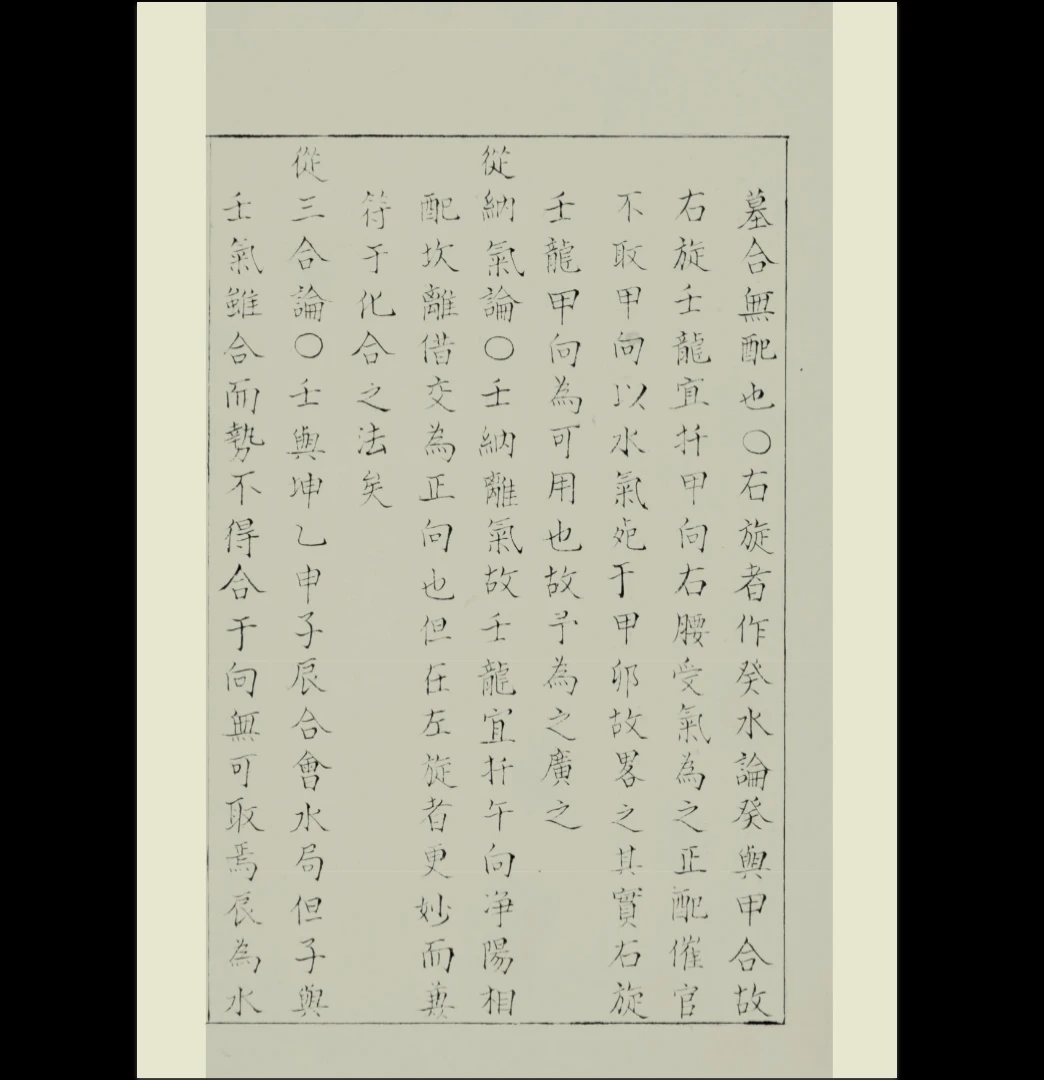 墓合無配也○右旋者作癸水論癸與甲合故
右旋壬龍宜扦甲向右腰受氣為之正配催官
不取甲向以水氣𣦸于甲卯故畧之其實右旋
壬龍甲向為可用也故予為之廣之
從納氣論○壬納離氣故壬龍宜扦午向净陽相
配坎離借交為正向也但在左旋者更妙而兼
符于化合之法矣
從三合論○壬與坤乙申子辰合會水局但子與
壬氣雖合而勢不得合于向無可取焉辰為水